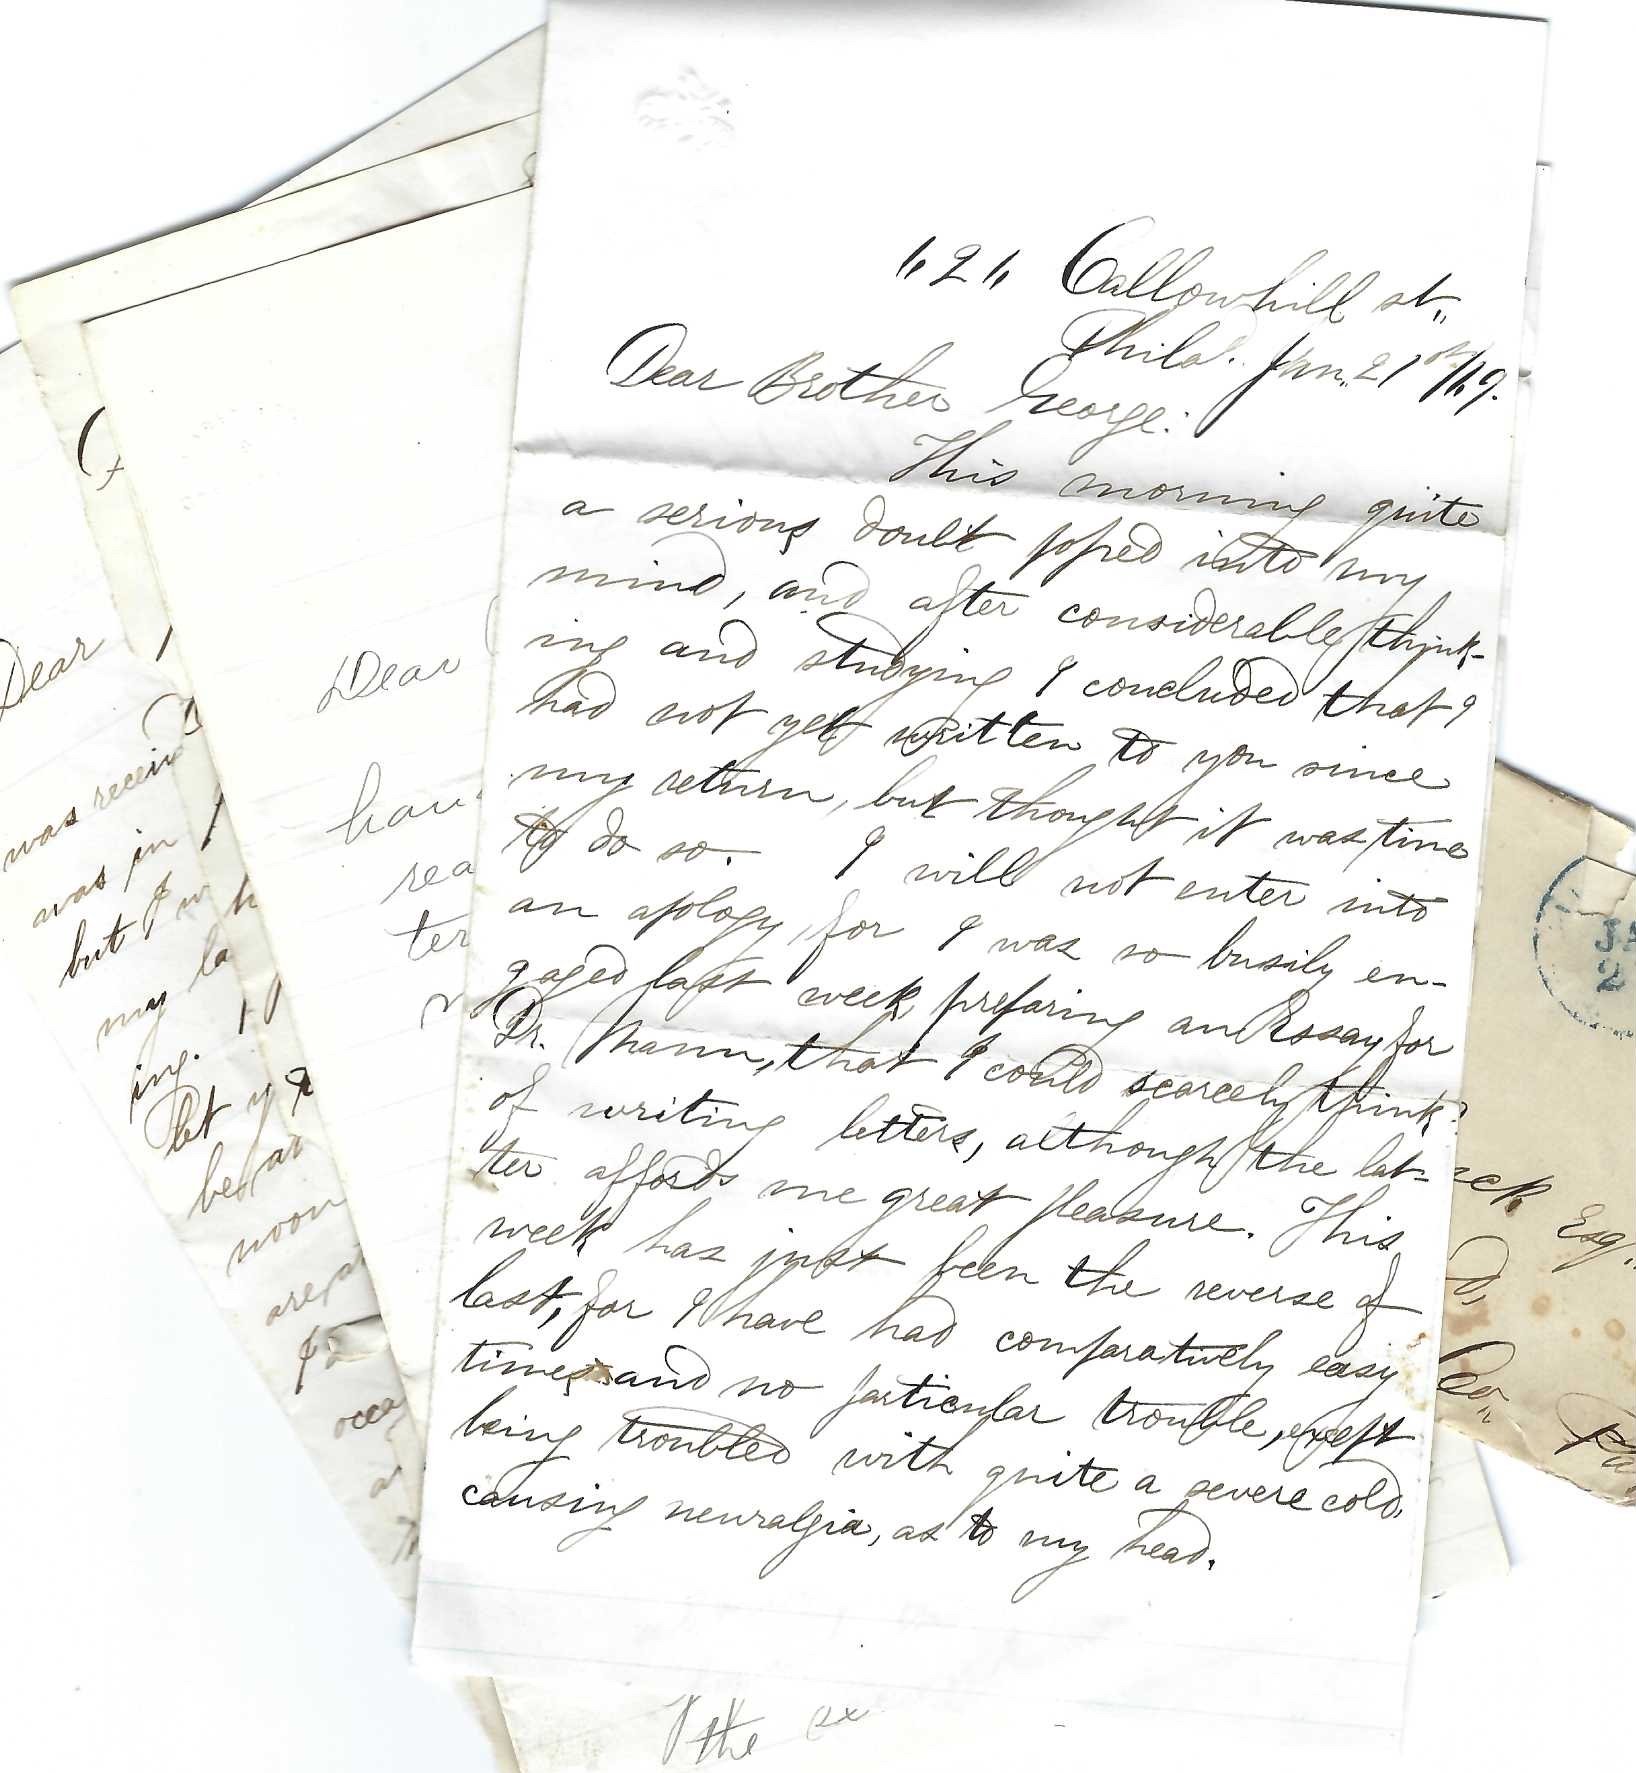 Callowhill st.,
Phila. Jan. 21st/69.
Dear Brother George:
This morning quite
a serious doubt poped into my
mind, and after considerable think-
ing and studying I concluded that I
had not yet written to you since
my return, but thought it was time
to do so. I will not enter into
an apology, for I was so busily en-
gaged last week, preparing an Essay for
Dr. Mann, that I could scarcely think
of writing letters, although the lat-
ter affords me great pleasure. This
week has just been the reverse of
last, for I have had comparatively easy
times and no particular trouble, except
being troubled with quite a severe cold,
causing neuralgia, as to my head.
Dear
was
was in
but I
my la
ing.
let
be
noon
are
Dear
hav
rea
ter
the
JA
2
Esq.
Co.,